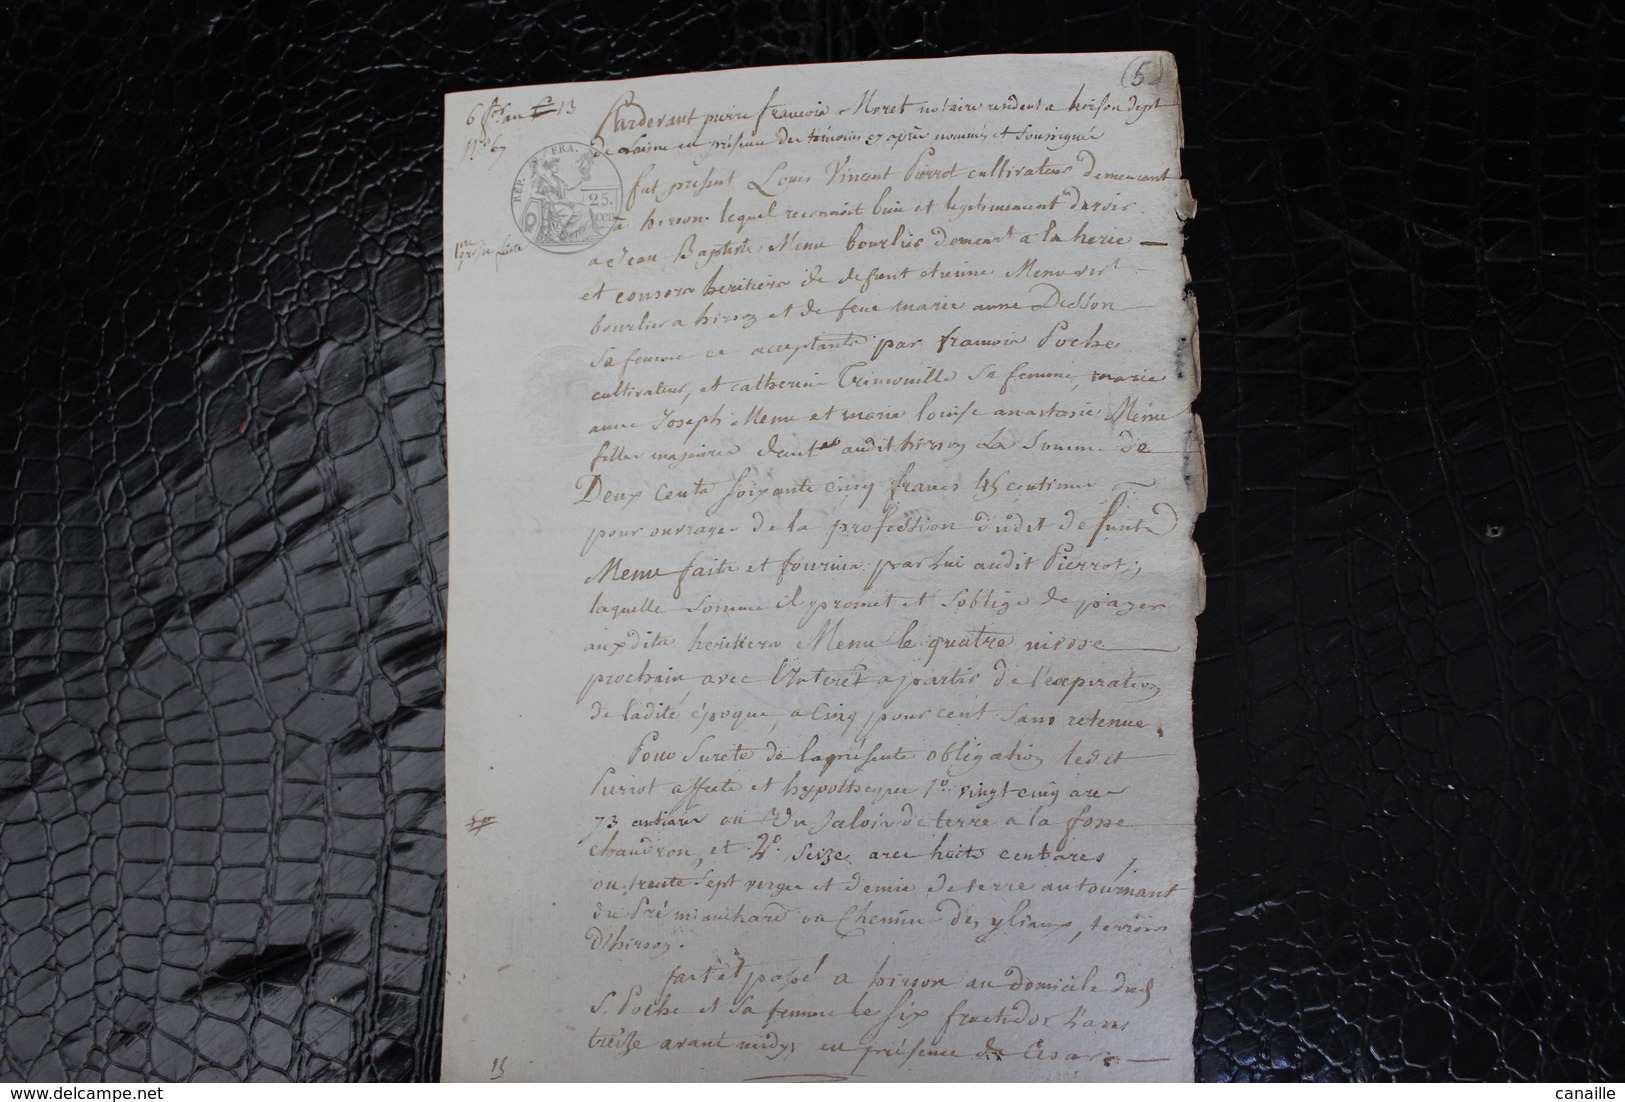 (5)
6 f.or an 13
N.o 67
1re grosse
Pardevant pierre francois Moret notaire resident a hirson dept
de Laisne en présence des témoins cy après nommés et soussignés
RÉP. FRA.
25. cen
fut présent Louis Vincent Pierrot cultivateur demeurant
à hirson. lequel reconnoit bien et legitimement devoir
a Jean Baptiste Menu bourlier demeurt a la herie —
et consors heritiers de defunt etienne Menu vivt
bourlier a hirson et de feue marie anne Desson
sa femme ce acceptante par francois Poche
cultivateur, et catherine Trimouille sa femme, marie
anne Joseph Menu et marie louise anastasie Menu
filles majeures audit hirson La Somme de
Deux cents soixante cinq francs 45 centimes —
pour ouvrages de la profession dudit defunt
Menu faits et fournis par lui audit Pierrot;
laquelle somme il promet et s'oblige de payer
auxdits heritiers Menu le quatre nivose
prochain, avec l'Interet a partir de l'expiration
de ladite époque, a Cinq pour cent sans retenue.
Pour sureté de la présente obligation ledit
Pierrot affecte et hypotheque 1o. vingt cinq ares
73 centiares ou un Jaloir de terre a la fosse
chaudron, et 2o. Seize ares huit centiares,
ou trente sept verges et demie de terre au tournant
du Pré ou Chemin des, terroir
D'hirson.
fait et passé a hirson au domicile dud
S. Poche et sa femme le six fructidor L'an
treize avant midy, en présence de Cesar —
15
canaille